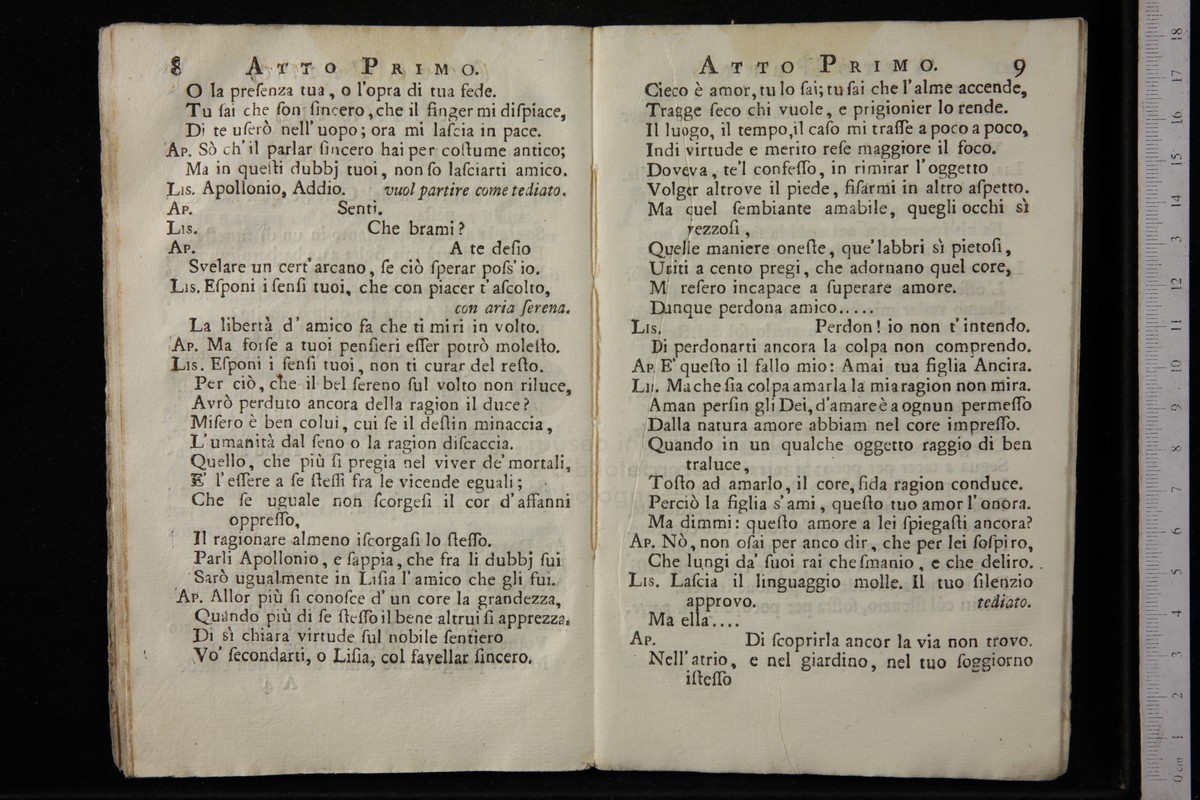 8 ATTO PRIMO.
O la preſenza tua, o l'opra di tua fede.
Tu ſai che ſon ſincero, che il finger mi diſpiace,
Di te uſerò nell' uopo; ora mi laſcia in pace.
AP. Sò ch' il parlar ſincero hai per coſtume antico;
Ma in queſti dubbj tuoi, non ſo laſciarti amico.
LIS. Apollonio, Addio. vuol partire come tediato.
AP. Senti.
LIS. Che brami?
AP. A te deſio
Svelare un cert' arcano, ſe ciò ſperar poſs' io.
LIS. Eſponi i ſenſi tuoi, che con piacer t' aſcolto,
con aria ſerena.
La libertà d' amico fa che ti miri in volto.
AP. Ma forſe a tuoi penſieri eſſer potrò moleſto.
LIS. Eſponi i ſenſi tuoi, non ti curar del reſto.
Per ciò, che il bel ſereno ſul volto non riluce,
Avrò perduto ancora della ragion il duce?
Miſero è ben colui, cui ſe il deſtin minaccia,
L' umanità dal ſeno o la ragion diſcaccia.
Quello, che più ſi pregia nel viver de' mortali,
E' l' eſſere a ſe ſteſſi fra le vicende eguali;
Che ſe uguale non ſcorgeſi il cor d' affanni
oppreſſo,
Il ragionare almeno iſcorgaſi lo ſteſſo.
Parli Apollonio, e ſappia, che fra li dubbj ſui
Sarò ugualmente in Liſia l' amico che gli fui.
AP. Allor più ſi conoſce d' un core la grandezza,
Quando più di ſe ſteſſo il bene altrui ſi apprezza.
Di sì chiara virtude ſul nobile ſentiero
Vo' ſecondarti, o Liſia, col favellar ſincero.
ATTO PRIMO. 9
Cieco è amor, tu lo ſai; tu ſai che l' alme accende,
Tragge ſeco chi vuole, e prigionier lo rende.
Il luogo, il tempo, il caſo mi traſſe a poco a poco,
Indi virtude e merito reſe maggiore il foco.
Doveva, te'l confeſſo, in rimirar l' oggetto
Volger altrove il piede, fiſarmi in altro aſpetto.
Ma quel ſembiante amabile, quegli occhi sì
vezzoſi,
Quelle maniere oneſte, que' labbri sì pietoſi,
Uniti a cento pregi, che adornano quel core,
M' reſero incapace a ſuperare amore.
Dunque perdona amico.....
LIS. Perdon! io non t' intendo.
Di perdonarti ancora la colpa non comprendo.
AP. E' queſto il fallo mio: Amai tua figlia Ancira.
LIS. Ma che ſia colpa amarla la mia ragion non mira.
Aman perſin gli Dei, d'amare è a ognun permeſſo
Dalla natura amore abbiam nel core impreſſo.
Quando in un qualche oggetto raggio di ben
traluce,
Toſto ad amarlo, il core, fida ragion conduce.
Perciò la figlia s' ami, queſto tuo amor l' onora.
Ma dimmi: queſto amore a lei ſpiegaſti ancora?
AP. Nò, non oſai per anco dir, che per lei ſoſpiro,
Che lungi da' ſuoi rai che ſmanio, e che deliro.
LIS. Laſcia il linguaggio molle. Il tuo ſilenzio
approvo. tediato.
Ma ella....
AP. Di ſcoprirla ancor la via non trovo.
Nell' atrio, e nel giardino, nel tuo ſoggiorno
iſteſſo